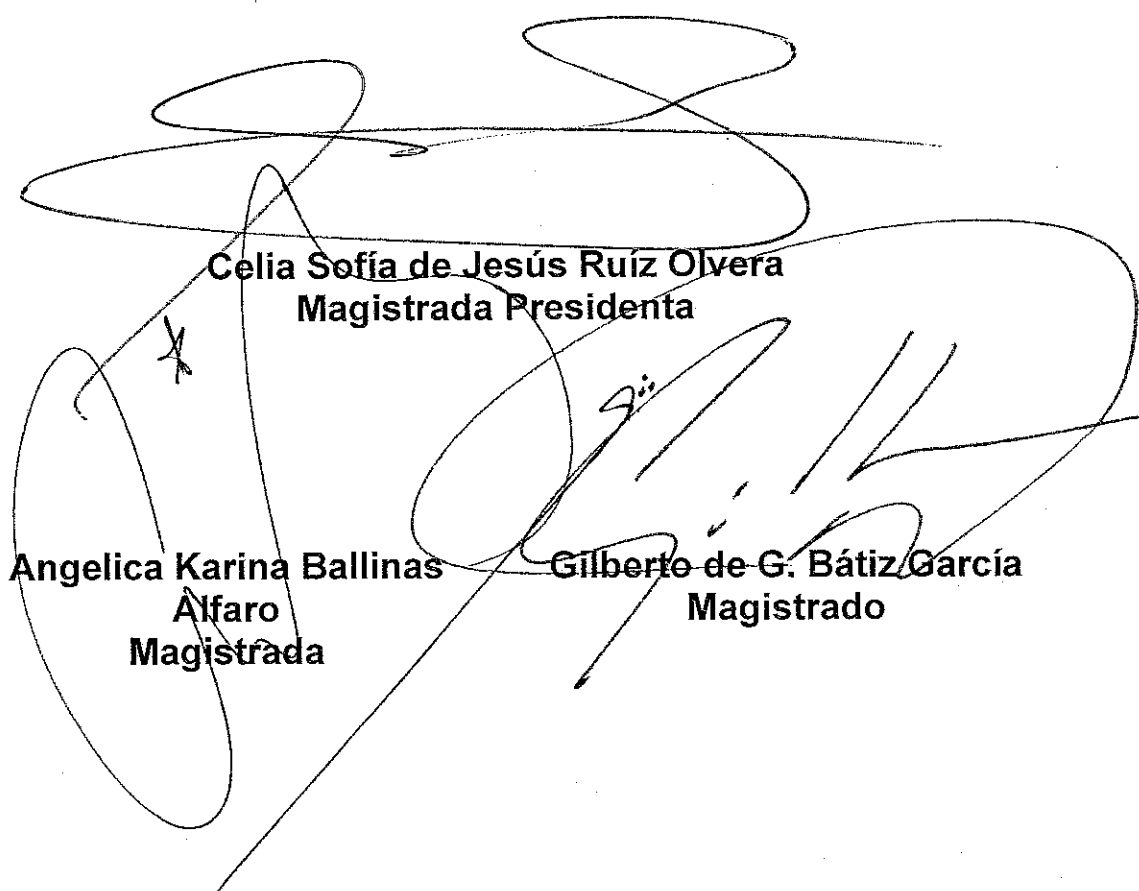 Celia Sofía de Jesús Ruíz Olvera
Magistrada Presidenta
Angelica Karina Ballinas
Alfaro
Magistrada
Gilberto de G. Bátiz García
Magistrado